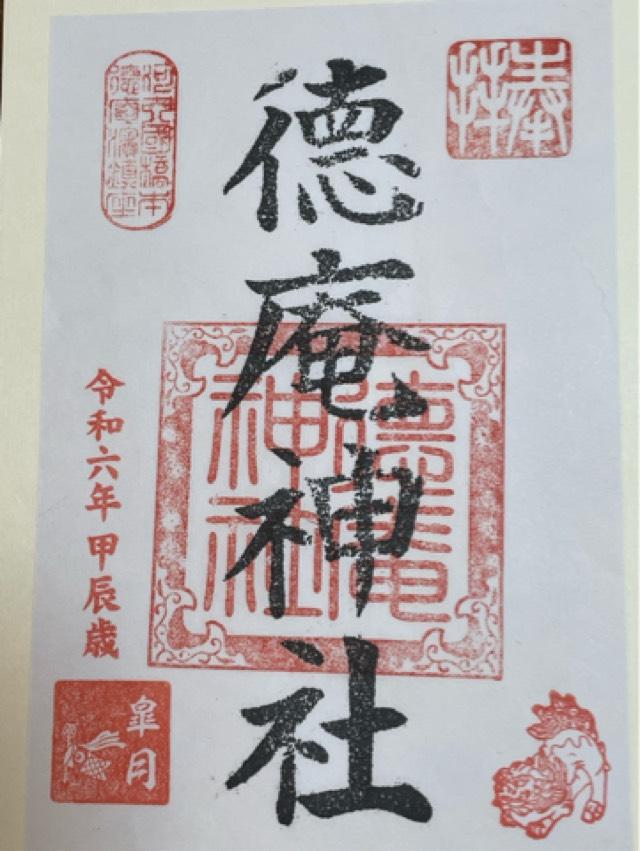 奉拝
徳庵神社
徳庵
神社
令和六年甲辰歳
皐月